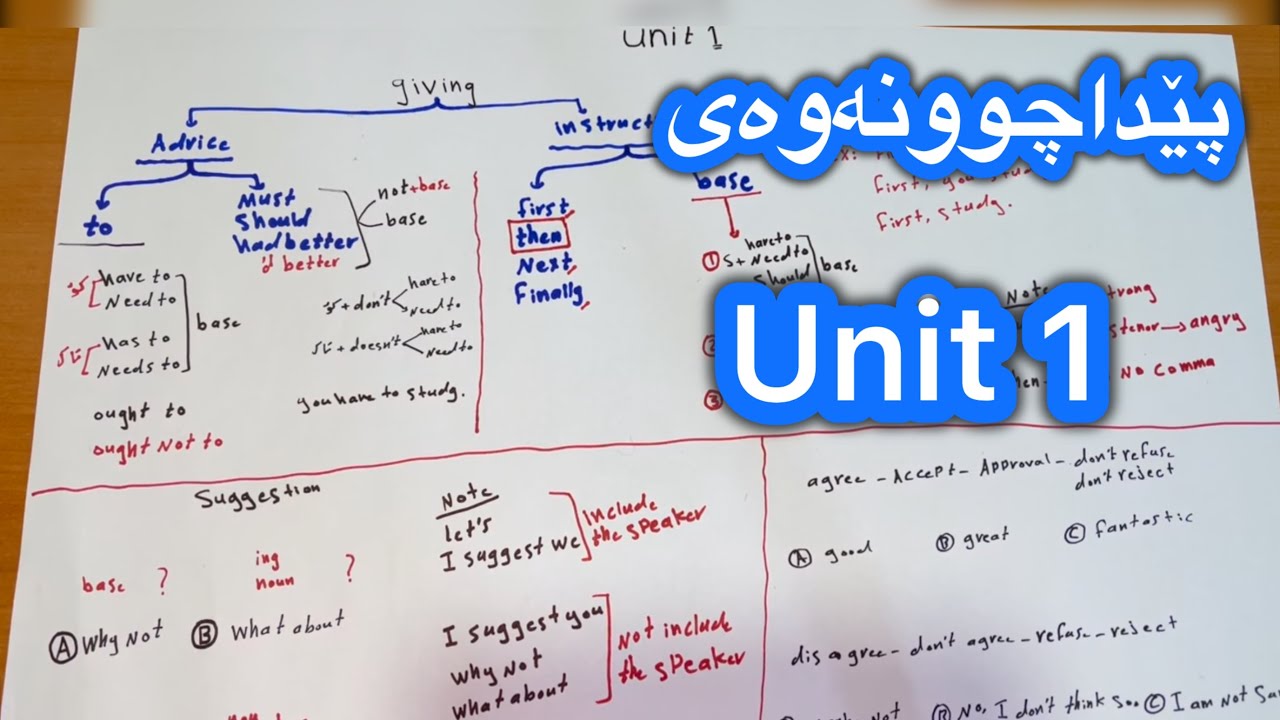 unit 1
پێداچوونەوەی
Unit 1
giving
Advice
to
Must
Should
Had better
'd better
not+base
base
have to
Need to
has to
Needs to
base
ought to
ought Not to
+ don't
have to
Need to
+ doesn't
have to
Need to
you have to studg.
instruct
first,
then
Next,
Finallg,
base
① S+
have to
Need to
Should
base
②
③
First, you stu
First, studg.
Note
trong
stenor → angry
No comma
Suggestion
base ?
ing
noun ?
Ⓐ Why Not
Ⓑ What about
Note
let's
I suggest we
Include
the speaker
I suggest you
why Not
what about
Not include
the speaker
agree - Accept - Approval - don't refuse
don't reject
Ⓐ good
Ⓑ great
Ⓒ fantastic
disagree - don't agree - refuse - reject
Not
Ⓑ No, I don't think so..
Ⓒ I am Not Su